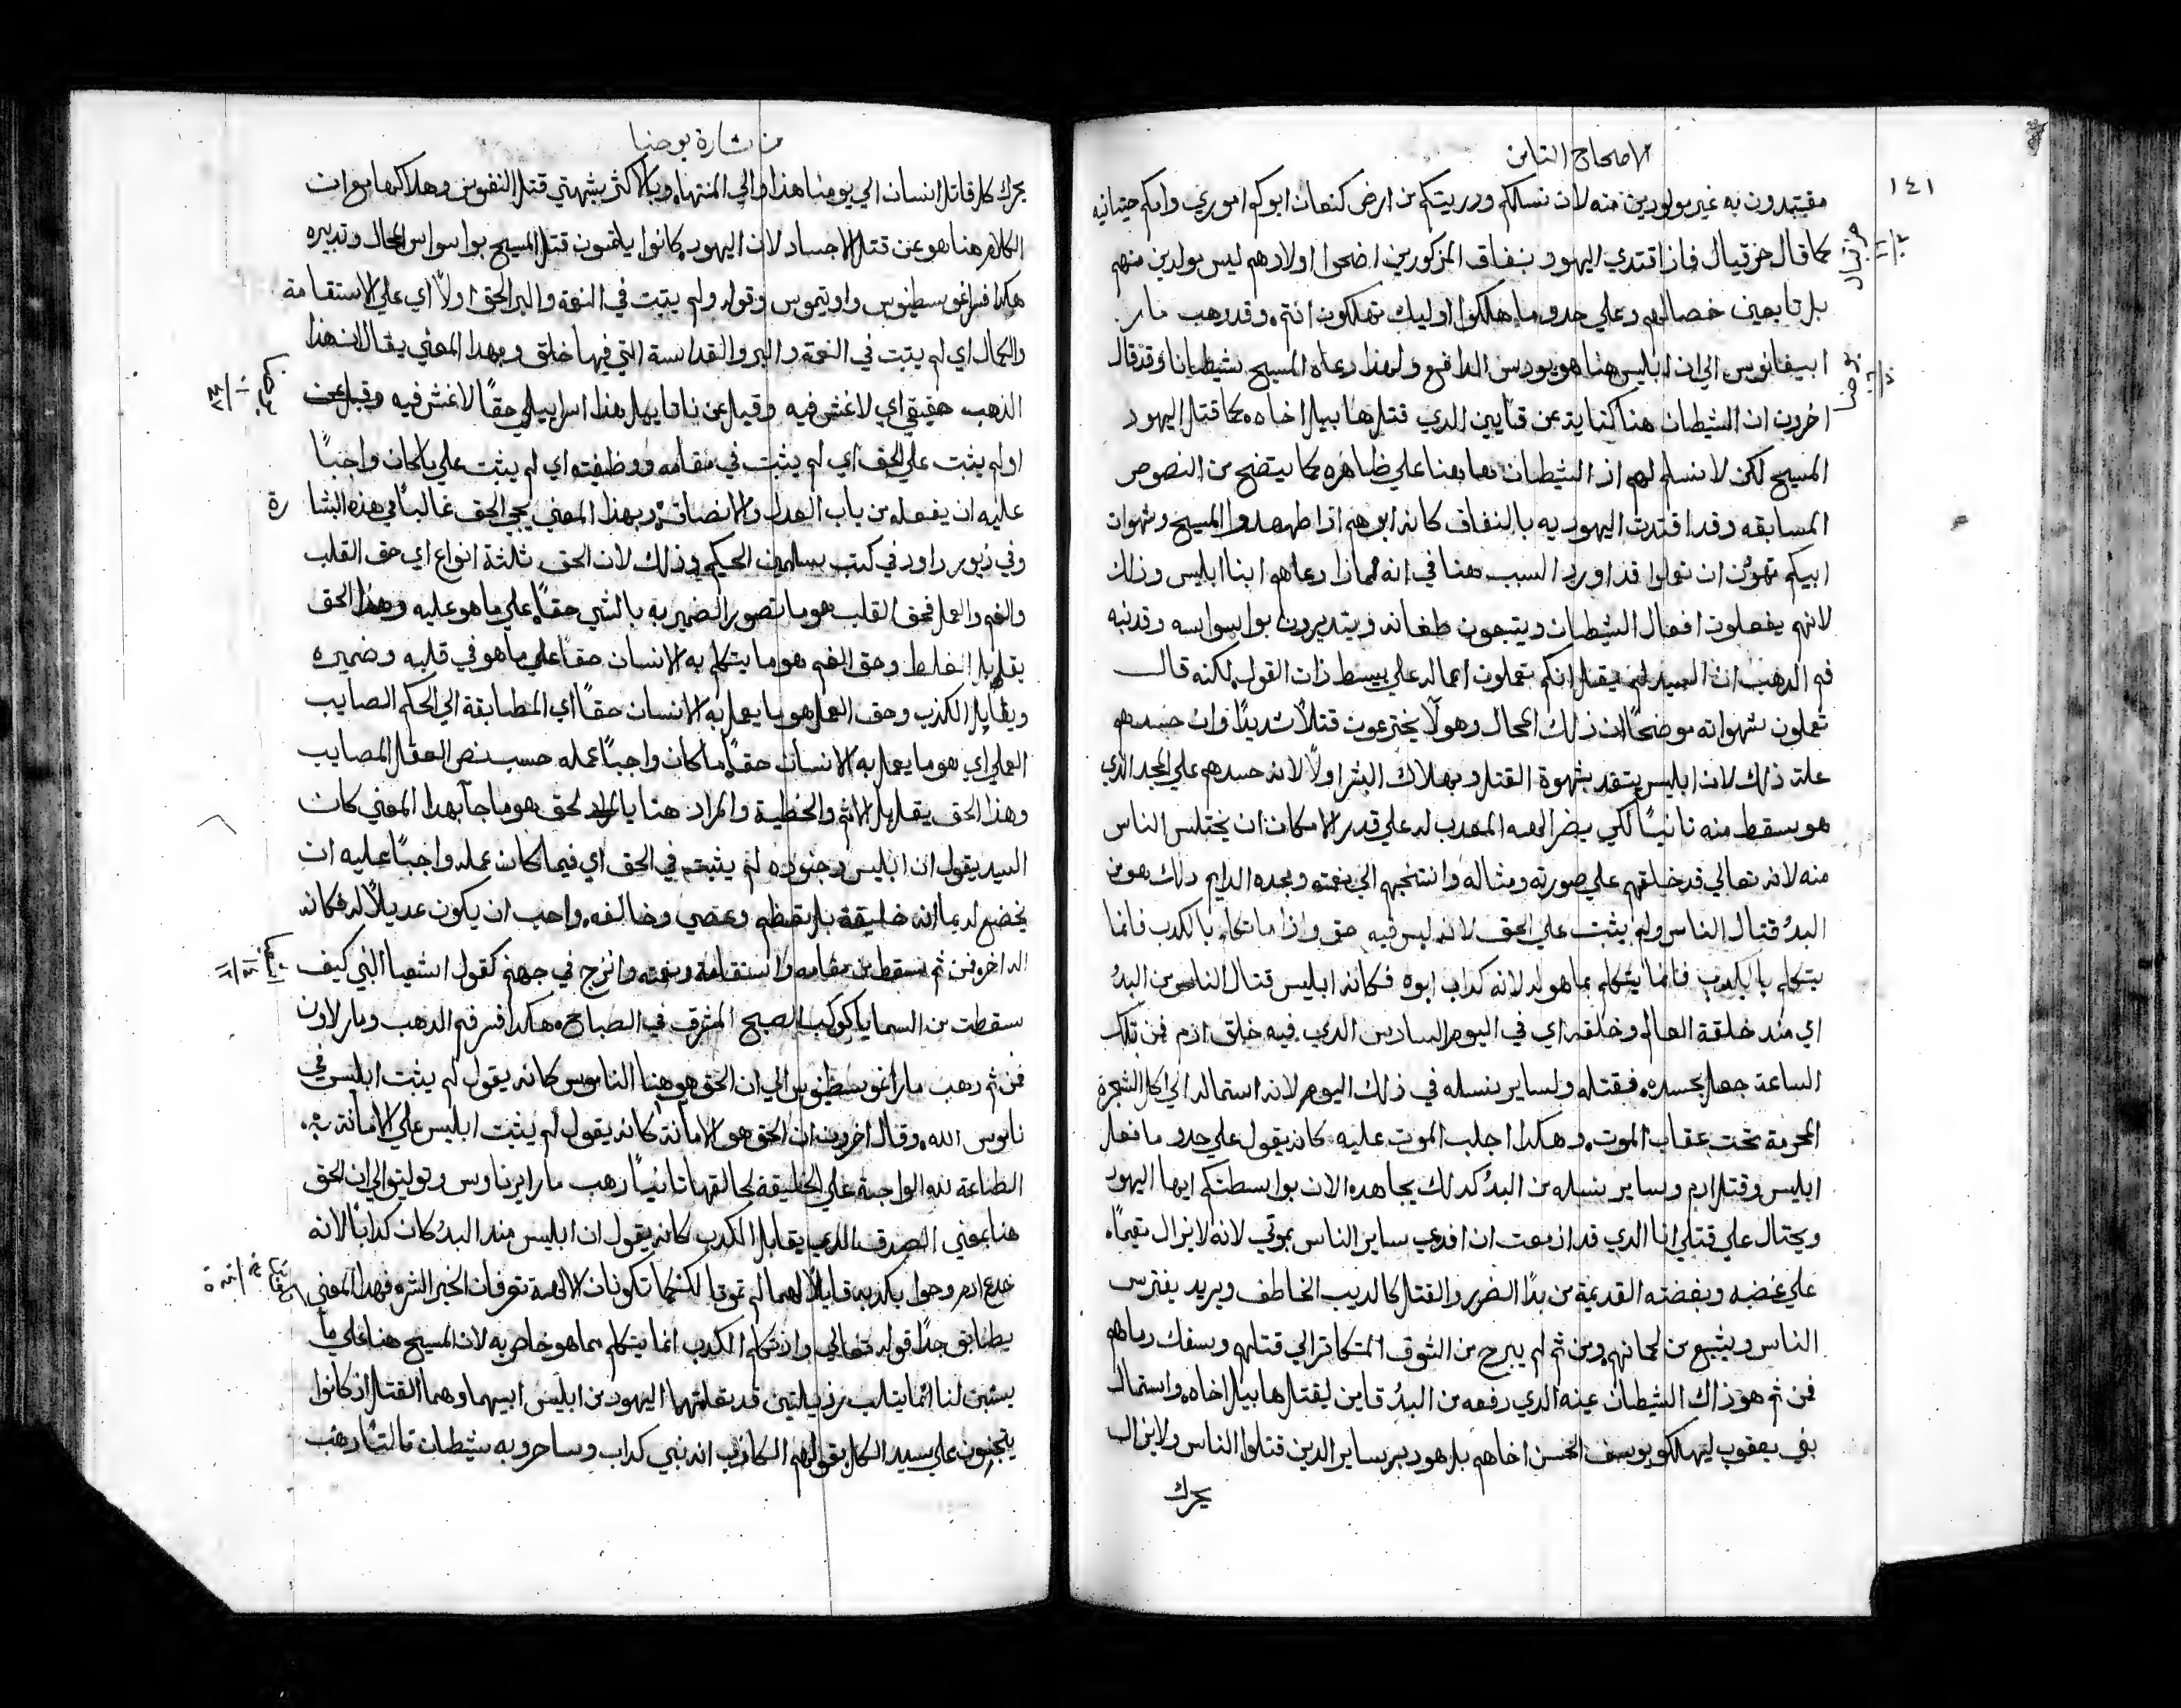 الاصحاح الثامن
١٤١
مقيتدون به غير مولودين منه لان نسلكم وذريتكم من ارض كنعان ابوكم اموري وامكم حيثانيه
كما قال حزقيال فاذ اقتدي اليهود بنفاق المزكورين اضحوا اولادهم ليس مولدين منهم
بل تابعين خصالهم وعلي حدو ما هلكوا اوليك تهلكون انتم وقد دهب مار
ابيفانوس الي ان ابليس هنا هو يودس الدافع ولهذا دعاه المسيح شيطانا وقد قال
اخرون ان الشيطان هنا كناية عن قايين الدي قتل هابيل اخاه كما قتل اليهود
المسيح لكن لا نسلم لهم اذ الشيطان هاهنا علي ظاهره كما يتضح من النصوص
المسابقه وقد اقتدت اليهود به بالنفاق كانه ابوهم اذ اطهدوا المسيح وشهوات
ابيكم تهوون ان تعملوا قد اورد السبب هنا في انه لماذا دعاهم ابنا ابليس وذلك
لانهم يفعلون افعال الشيطان ويتبعون طغانه ويتدبرون بوسواسه وقد نبه
فم الدهب ان السيد لم يقل انكم تعملون اعماله علي بسيط ذات القول لكنه قال
تعملون شهواته موضحا ان ذلك المحال وهولا يخترعون قتلا شديدا وان حسدهم
علة ذلك لان ابليس يتقد بشهوة القتل وبهلاك البشر اولا لانه حسدهم علي المجد الدي
هو سقط منه ثانيا لكي يضر الاهه المعدب له علي قدر الامكان ان يختلس الناس
منه لانه تعالي قد خلقهم علي صورته ومثاله وانتخبهم الي نعمته ومجده الدايم دلك هو من
البدء قتال الناس ولم يثبت علي الحق لانه ليس فيه حق واذا ما تكلم بالكدب فانما
يتكلم بالكدب فانما يتكلم بما هو له لانه كداب ابوه فكانه ابليس قتال الناس من البدء
اي مند خلقة العالم وخلقه اي في اليوم السادس الدي فيه خلق ادم فمن تلك
الساعة جعل يحسده فقتله ولساير نسله في ذلك اليوم لانه استماله الي اكل الشجرة
المحرمة تحت عقاب الموت وهكدا اجلب الموت عليه كانه يقول علي حدو ما فعل
ابليس وقتل ادم وساير نسله من البدء كدلك يجاهده الان بواسطتكم ايها اليهود
ويحتال علي قتلي انا الدي قد ازمعت ان افدي ساير الناس بموتي لانه لا يزال مقيما
علي غضبه وبغضته القديمة من بدا الضرر والقتل كالديب الخاطف ويريد يفترس
الناس ويشبع من لحمانهم ومن ثم لم يبرح من الشوق المتكاتر الي قتلهم وسفك دماهم
فمن ثم هو ذاك الشيطان عينه الدي دفعه من البدء قاين ليقتل هابيل اخاه واستمال
بني يعقوب ليهلكو يوسف الحسن اخاهم بل هو دبر ساير الدين قتلوا الناس ولا يزال
يحرك
من بشارة يوحنا
يحرك كل قاتل انسان الي يومنا هذا والي المنتها وبالاكثر يشتهي قتل النفوس وهلاكها مع ان
الكلام هنا هو عن قتل الاجساد لان اليهود كانوا يلتمسون قتل المسيح بوسواس المحال وتدبيره
هكدا فسر اغوسطينوس واوتيموس وقوله ولم يثبت في النعمة والبر الحق اولا اي علي الاستقامة
والكمال اي لم يثبت في النعمة والبر والقداسة التي فيها خلق وبهدا المعني يقال ان هذا
الذهب حقيقي اي لا غش فيه وقيل عن ناتانيل هذا اسراييلي حقا لا غش فيه
او لم يثبت علي الحق اي لم يثبت في مقامه ووظيفته اي لم يثبت علي ما كان واجبا
عليه ان يفعله من باب العدل والانصاف وبهذا المعني يجي الحق غالبا في هذه البشارة
وفي زبور داود في كتب سليمان الحكيم وذلك لان الحق ثلثة انواع اي حق القلب
والفم والعمل فحق القلب هو ما تصور الضمير به بالشي حقا علي ما هو عليه وهذا الحق
يقابل الغلط وحق الفم هو ما يتكلم به الانسان حقا علي ما هو في قلبه وضميره
ويقابل الكذب وحق العمل هو ما يعمل به الانسان حقا اي المطابقة الي الحكم الصايب
العملي اي هو ما يعمل به الانسان حقا ما كان واجبا عمله حسب نص العقل المصايب
وهذا الحق يقابل الاثم والخطية والمراد هنا بالحق هو ما جا بهدا المعني كان
السيد يقول ان ابليس وجنوده لم يثبت في الحق اي فيما كان عمله واجبا عليه ان
يخضع له بما انه خليقة بل تعظم وعصي وخالفه واحب ان يكون عديلا له فكانه
فمن ثم سقط من مقامه واستقامة ونعمته وانزج في جهنم كقول اشعيا النبي كيف
سقطت من السما يا كوكب الصبح المشرق في الصباح هكدا فسر فم الدهب ومار لاون
فمن ثم دهب مار اغوسطينوس الي ان الحق هو هنا الناموس كانه يقول لم يثبت ابليس في
ناموس الله وقال اخرون ان الحق هو الامانة كانه يقول لم يثبت ابليس علي الامانة
الطاعة لله الواجبة علي الخليقة لخالقها ثانيا دهب مار ايريناوس وتوليتو الي ان الحق
هنا بمعني الصدق الدي يقابل الكدب كانه يقول ان ابليس مند البدء كان كدابا لانه
خدع ادم وحوا بكدبه قايلا لهما لم تموتا لكنكما تكونان كالالهة تعرفان الخير الشر فهدا المعني
يطابق جدا قوله تعالي واذ تكلم الكدب انما يتكلم بما هو خاص به لان المسيح هنا علي ما
يبين لنا انما يثلب رذيلتين قد تعلمتهما اليهود من ابليس ابيهما وهما القتل اذ كانوا
يتجنون علي سيد الكل بقولهم الكاذب انه نبي كداب وساحر وبه شيطان ثالثا دهب